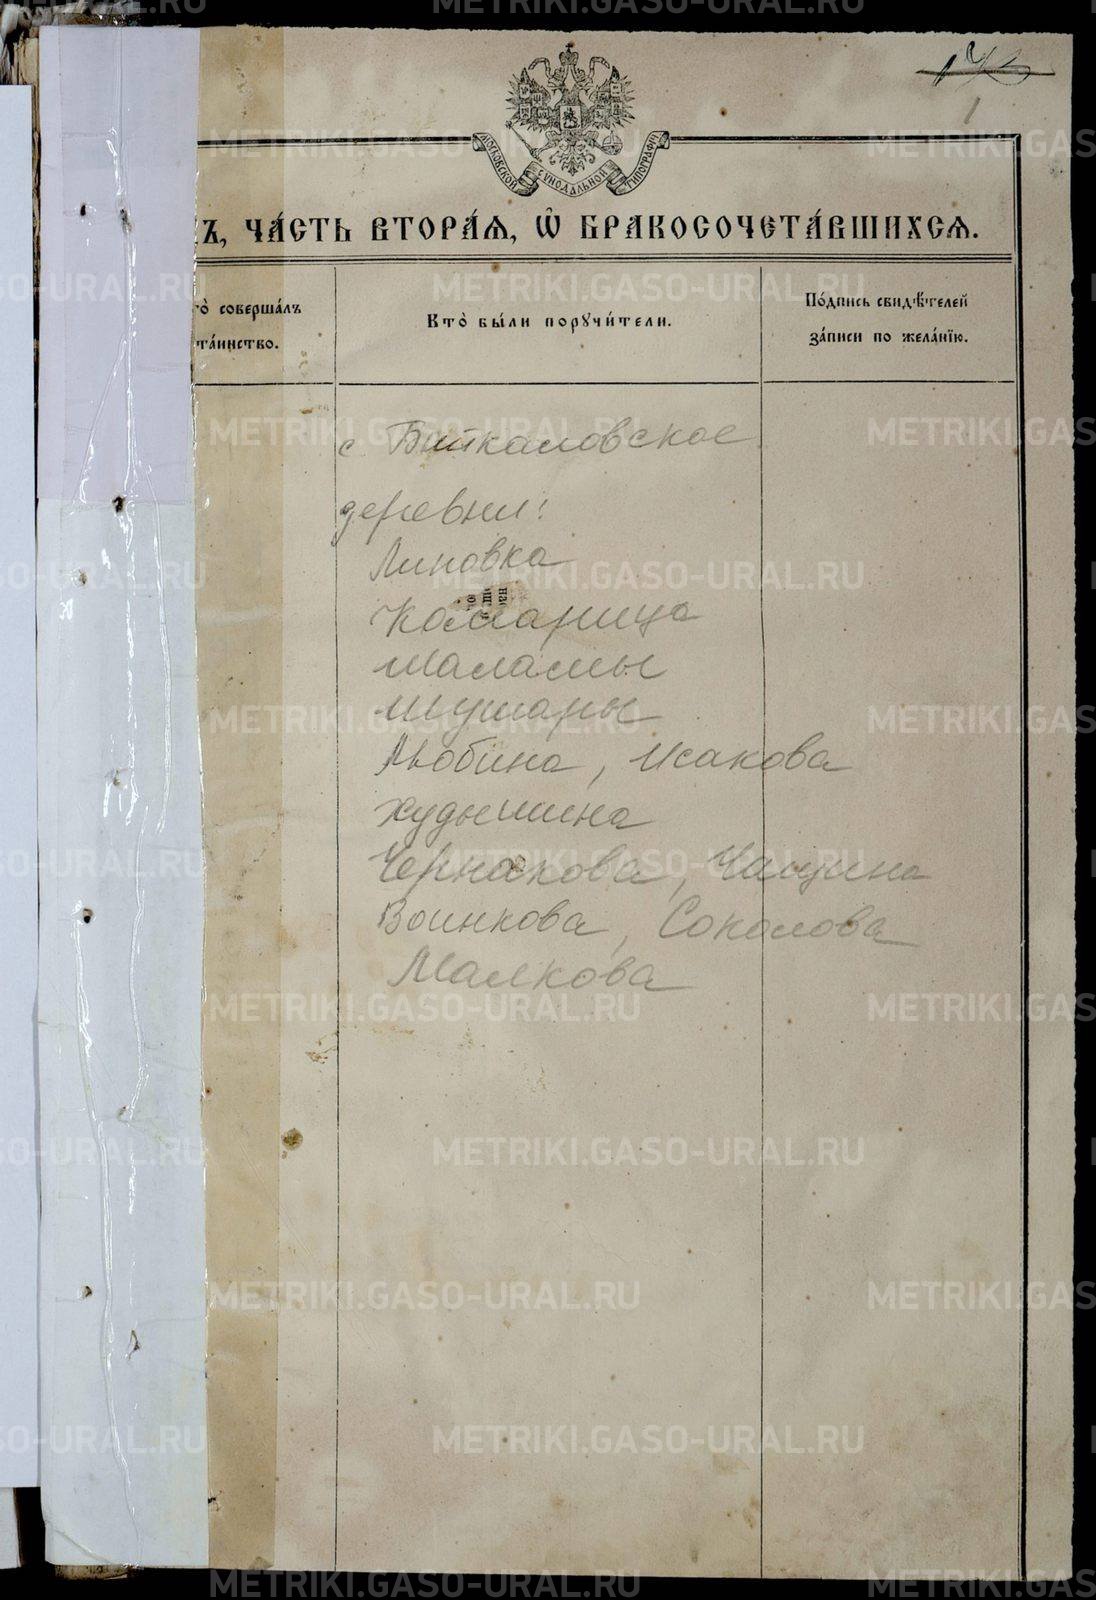 МОСКОВСКОЙ СѴНОДАЛЬНОЙ ТИПОГРАФІИ
1
Ъ, ЧА́СТЬ ВТОРА́Я, Ѡ҆ БРАКОСОЧЕТА́ВШИХСЯ.
то̀ соверша́лъ
та́инство.
Кто̀ бы́ли порꙋчи́тели.
По́дпись свидѣ́телей
за́писи по жела́нїю.
с Байкаловское
деревни:
Липовка
Комарица
Шаламы
Шушары
Любина, Исакова
Худышина
Чернакова, Чащина
Воинкова, Соколова
Малкова
METRIKI.GASO-URAL.RU